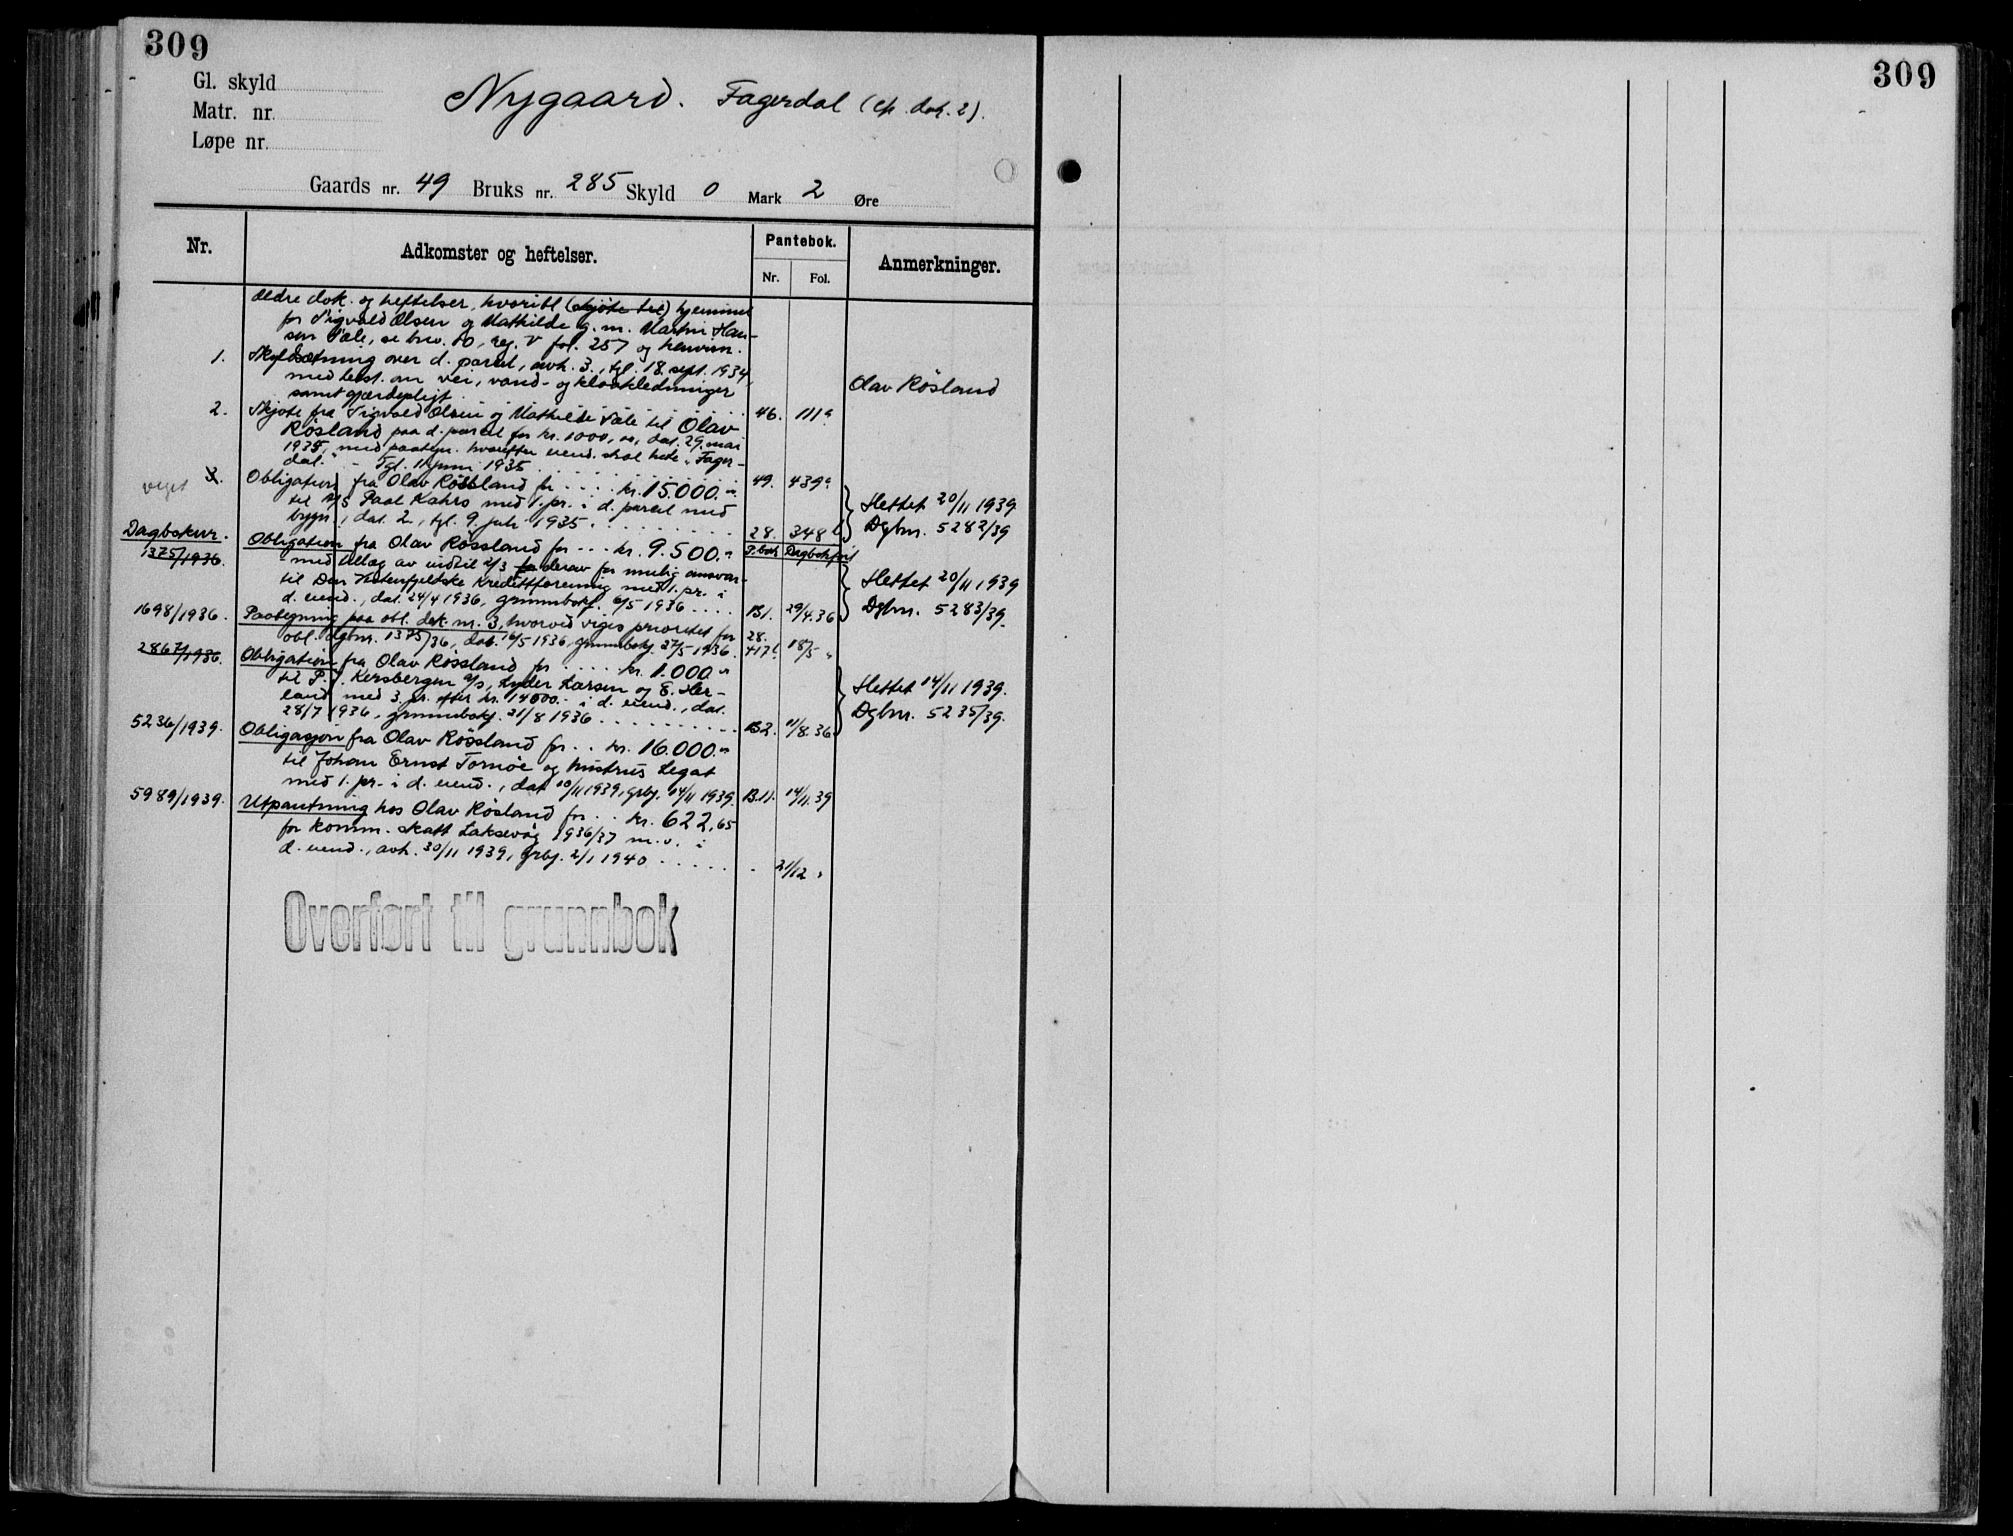 309
309
Gl. skyld
Matr. nr.
Løpe nr.
Nygaard. Fagerdal (cfr. dok. 2).
Gaards nr. 49 Bruks nr. 285 Skyld 0 Mark 2 Øre
Nr. Adkomster og heftelser. Pantebok. Anmerkninger.
Nr. Fol.
Ældre dok. og heftelser, hvoribl. (skjøte til) hjemmel
for Sigvald Olsen og Mathilde g. m. Martin Han-
sen Sæle, se brno. 10, reg. V fol. 257 og henvisn.
1. Skyldsætning over d. parcel, avh. 3., tgl. 18. sept. 1934,
med best. om vei, vand- og kloakledninger
samt gjærdepligt.
Olav Røsland
2. Skjøte fra Sigvald Olsen og Mathilde Sæle til Olav 46. 111a
Røsland paa d. parcel for kr. 1000,00, dat. 29. mai
1935, med paategn. hvorefter eiend. skal hete "Fager-
dal." - Tgl. 11. juni 1935
viget 3. Obligation fra Olav Røssland for .... kr. 15.000.00 49. 439a
til A/S Paal Kahrs med 1. pr. i d. parcel med
bygn., dat. 2., tgl. 9. juli 1935. 28. 348b
Slettet 20/11 1939
Dgbnr. 5282/39
Dagboksnr. P.bok Dagbokført
1375/1936. Obligation fra Olav Røssland for ... kr. 9.500.00
med tillæg av indtil 2/3 derav for mulig ansvar
til Den Vestenfjeldske Kredittforening med 1. pr. i
d. eiend., dat. 24/4 1936, grunnbokf. 6/5 1936 .... B1. 29/4.36
Slettet 20/11 1939
Dgbnr. 5283/39.
1698/1936. Paategning paa obl. dok. nr. 3, hvorved viges prioritet for
obl. dgbnr. 1375/36, dat. 16/5 1936, grunnbokf. 27/5 1936. 28. 417b. 18/5 "
2867/1936. Obligation fra Olav Røssland for ..... kr. 1.000.00
til P. J. Kersbergen A/S, Lyder Larsen og E. Her-
land med 3. pr. efter kr. 14000.- i d. eiend., dat.
28/7 1936, grunnbokf. 21/8 1936 ........ B2. 11/8.36
Slettet 14/11 1939.
Dgbnr. 5235/39.
5236/1939. Obligasjon fra Olav Røssland for .. kr. 16.000.00
til Johan Ernst Tornøe og hustrus Legat
med 1. pr. i d. eiend., dat. 10/11 1939, grbf. 14/11 1939. B.11. 14/11.39
5989/1939. Utpantning hos Olav Røsland for .. kr. 622,65
for komm. skatt Laksevåg 1936/37 m.v. i
d. eiend., avh. 30/11 1939, grbf. 2/1 1940 ..... " 21/12 "
Overført til grunnbok